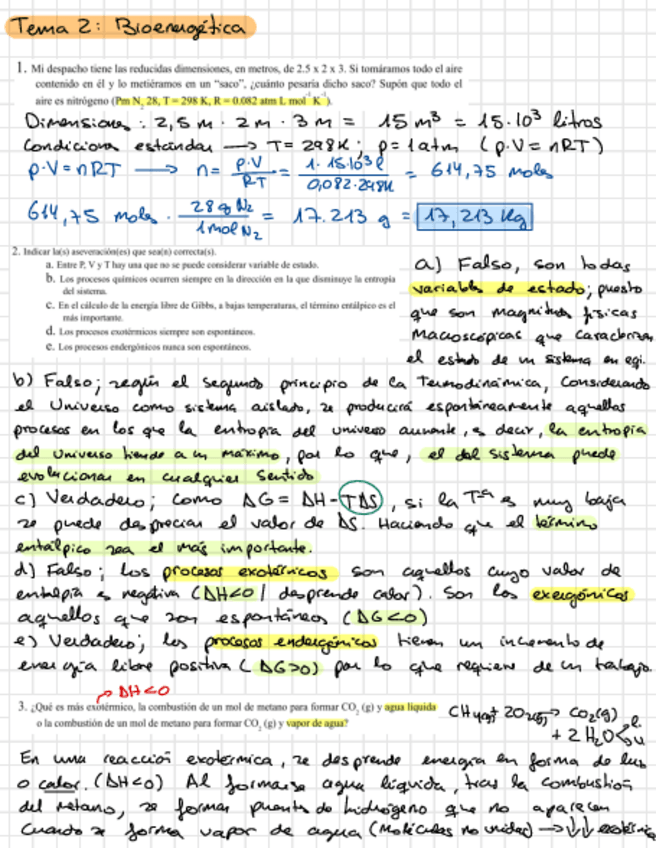 Tema 2: Bioenergética
1. Mi despacho tiene las reducidas dimensiones, en metros, de 2.5 x 2 x 3. Si tomáramos todo el aire
contenido en él y lo metiéramos en un "saco", ¿cuánto pesaría dicho saco? Supón que todo el
aire es nitrógeno (Pm N2 28, T = 298 K, R = 0.082 atm L mol⁻¹ K⁻¹).
Dimensiones: 2,5 m · 2 m · 3 m = 15 m³ = 15·10³ litros
Condiciones estándar → T = 298K; p = 1 atm (p·V = nRT)
p·V = nRT → n = p·V / RT = 1 · 15·10³ l / 0,082·298K = 614,75 moles
614,75 moles · 28 g N2 / 1 mol N2 = 17.213 g = 17,213 Kg
2. Indicar la(s) aseveración(es) que sea(n) correcta(s).
a. Entre P, V y T hay una que no se puede considerar variable de estado.
b. Los procesos químicos ocurren siempre en la dirección en la que disminuye la entropía
del sistema.
c. En el cálculo de la energía libre de Gibbs, a bajas temperaturas, el término entálpico es el
más importante.
d. Los procesos exotérmicos siempre son espontáneos.
e. Los procesos endergónicos nunca son espontáneos.
a) Falso, son todas
variables de estado; puesto
que son magnitudes físicas
macroscópicas que caracterizan
el estado de un sistema en eqi.
b) Falso; según el segundo principio de la Termodinámica, considerando
el Universo como sistema aislado, se producirá espontáneamente aquellos
procesos en los que la entropía del universo aumente, es decir, la entropía
del Universo tiende a un máximo, por lo que, el del sistema puede
evolucionar en cualquier sentido
c) Verdadero; como ΔG = ΔH - TΔS, si la Tª es muy baja
se puede despreciar el valor de ΔS. Haciendo que el término
entálpico sea el más importante.
d) Falso; los procesos exotérmicos son aquellos cuyo valor de
entalpía es negativa (ΔH<0 / desprende calor). Son los exergónicos
aquellos que son espontáneos (ΔG<0)
e) Verdadero; los procesos endergónicos tienen un incremento de
energía libre positiva (ΔG>0) por lo que requiere de un trabajo.
→ ΔH<0
3. ¿Qué es más exotérmico, la combustión de un mol de metano para formar CO2 (g) y agua líquida
o la combustión de un mol de metano para formar CO2 (g) y vapor de agua?
CH4(g) + 2O2(g) → CO2(g)
+ 2 H2O
En una reacción exotérmica, se desprende energía en forma de luz
o calor. (ΔH<0) Al formarse agua líquida, tras la combustión
del metano, se forman puentes de hidrógeno que no aparecen
cuando se forma vapor de agua (moléculas no unidas) → ↓↓ exotérmica